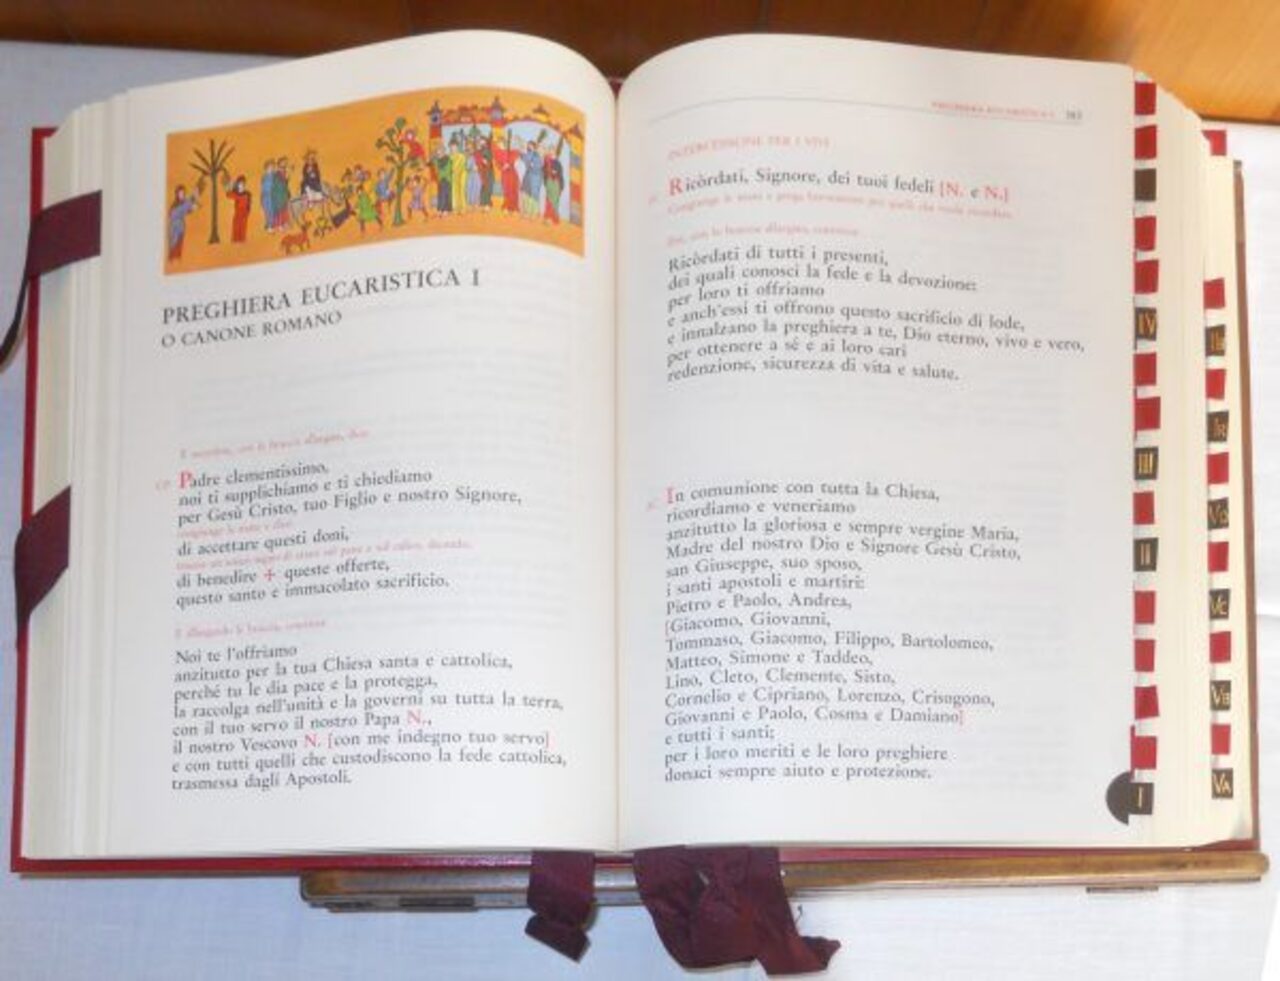 PREGHIERA EUCARISTICA I
O CANONE ROMANO
E
CP
Padre clementissimo,
noi ti supplichiamo e ti chiediamo
per Gesù Cristo, tuo Figlio e nostro Signore,
congiunge le mani e dice
di accettare questi doni,
di benedire + queste offerte,
questo santo e immacolato sacrificio.
E allargando le braccia, continua:
Noi te l'offriamo
anzitutto per la tua Chiesa santa e cattolica,
perché tu le dia pace e la protegga,
la raccolga nell'unità e la governi su tutta la terra,
con il tuo servo il nostro Papa N.,
il nostro Vescovo N. [con me indegno tuo servo]
e con tutti quelli che custodiscono la fede cattolica,
trasmessa dagli Apostoli.
PREGHIERA EUCARISTICA I
INTERCESSIONE PER I VIVI
Ricòrdati, Signore, dei tuoi fedeli [N. e N.]
Ricòrdati di tutti i presenti,
dei quali conosci la fede e la devozione:
per loro ti offriamo
e anch'essi ti offrono questo sacrificio di lode,
e innalzano la preghiera a te, Dio eterno, vivo e vero,
per ottenere a sé e ai loro cari
redenzione, sicurezza di vita e salute.
In comunione con tutta la Chiesa,
ricordiamo e veneriamo
anzitutto la gloriosa e sempre vergine Maria,
Madre del nostro Dio e Signore Gesù Cristo,
san Giuseppe, suo sposo,
i santi apostoli e martiri:
Pietro e Paolo, Andrea,
[Giacomo, Giovanni,
Tommaso, Giacomo, Filippo, Bartolomeo,
Matteo, Simone e Taddeo,
Lino, Cleto, Clemente, Sisto,
Cornelio e Cipriano, Lorenzo, Crisogono,
Giovanni e Paolo, Cosma e Damiano]
e tutti i santi;
per i loro meriti e le loro preghiere
donaci sempre aiuto e protezione.
IV
III
II
I
VD
VC
VB
VA